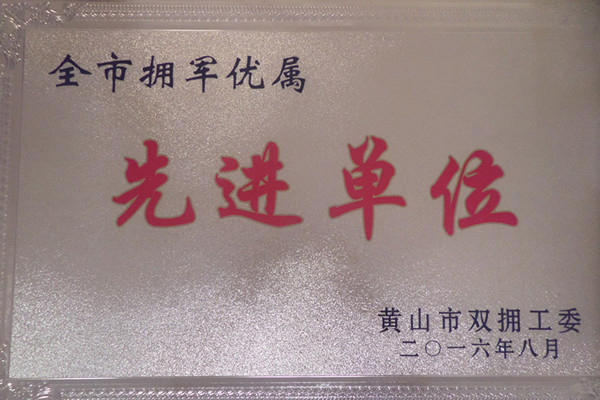 全市拥军优属
先进单位
黄山市双拥工委
二〇一六年八月